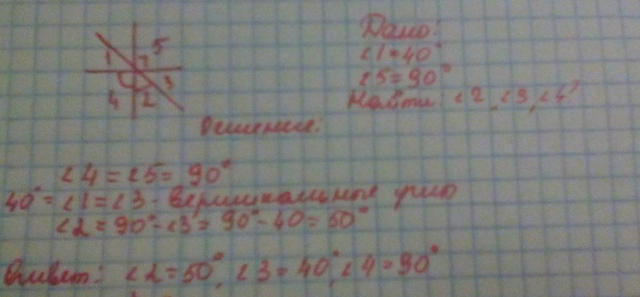 Дано:
∠1=40°
∠5=90°
Найти: ∠2, ∠3, ∠4
1 5
3
4 2
Решение:
∠4=∠5=90°
40°=∠1=∠3-вертикальные углы
∠2=90°-∠3=90°-40=50°
Ответ: ∠2=50°, ∠3=40°, ∠4=90°